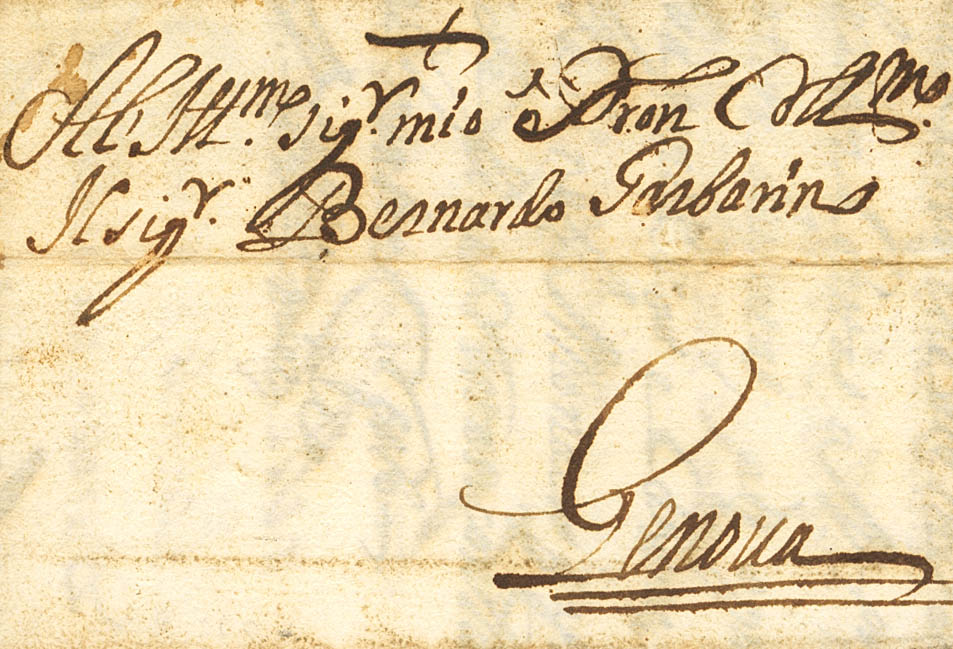 Al Ill.mo sig.r mio e Pron Coll.mo
Il sig.r Bernardo Garbarino
Genoua